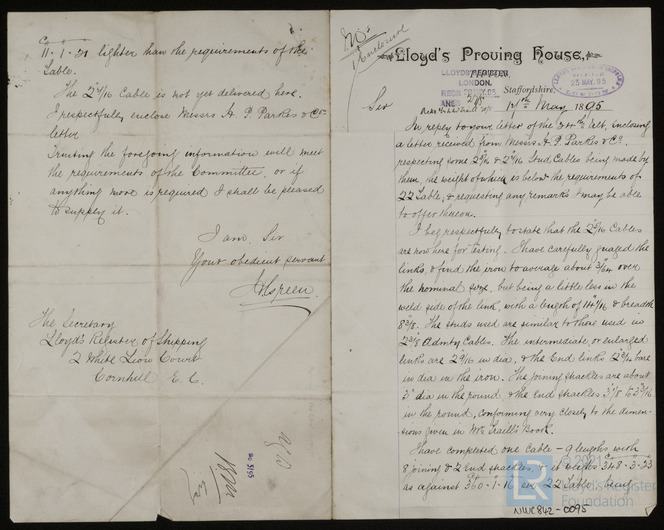 Lloyd's Proving House,
LLOYD'S REGISTER,
LONDON.
25 MAY.95
Staffordshire,
17th May 1895
Sir
In reply to your letter of the 24th Ult, enclosing
a letter received from Messrs H. P. Parkes & Co.
respecting some 2 5/16 & 2 7/16 Stud Cables being made by
them, the weight of which is below the requirements of
22 Table, & requesting any remarks I may be able
to offer thereon.
I beg respectfully to state that the 2 5/16 Cables
are now here for testing. I have carefully guaged the
links, & find the iron to average about 3/64 over
the nominal size, but being a little less in the
weld side of the link, with a length of & breadth
8 3/8. The studs used are similar to those used in
2 3/8 Admty Cables. The intermediate, or enlarged
links are 2 9/16 in dia, & the End links 2 3/4 bare
in dia in the iron. The joining shackles are about
3" dia in the round & the End shackles 3 1/8 to 3 3/16
in the round, conforming very closely to the dimen-
sions given in Mr Traill's Book.
I have completed one Cable - 9 lengths with
8 joining & 2 End shackles, & it weighs 348-3-23
as against 360-1-16 per 22 Table, being
11-1-21 lighter than the requirements of the
Table.
The 2 7/16 Cable is not yet delivered here.
I respectfully enclose Messrs H. P. Parkes & Co's
letter
Trusting the foregoing information will meet
the requirements of the Committee, or if
anything more is required I shall be pleased
to supply it.
I am, Sir
Your obedient servant
The Secretary
Lloyd's Register of Shipping
2 White Lion Court
Cornhill E. C.
No 5195
© 2021
LR
Lloyd's Register
Foundation
NWC842-0095